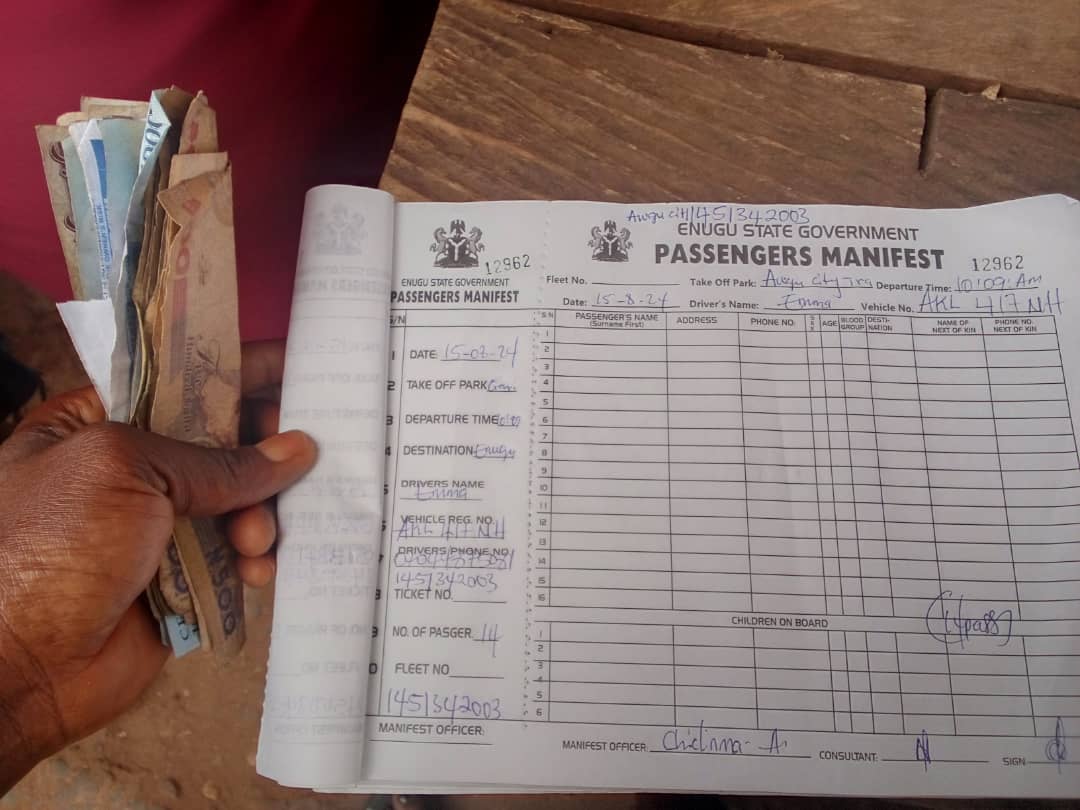 12962
ENUGU STATE GOVERNMENT
PASSENGERS MANIFEST
S/N
1 DATE: 15-08-24
2 TAKE OFF PARK
3 DEPARTURE TIME 10:09
4 DESTINATION Enugu
5 DRIVERS NAME
Emma
6 VEHICLE REG. NO.
AKL 417 NH
7 DRIVERS PHONE NO
1451342003
8 TICKET NO.
9 NO. OF PASGER. 14
10 FLEET NO
1451342003
MANIFEST OFFICER:
Awgu 1451342003
ENUGU STATE GOVERNMENT
PASSENGERS MANIFEST
12962
Fleet No. Take Off Park: Awgu city Departure Time: 10:09 Am
Date: 15-8-24 Driver's Name: Emma Vehicle No. AKL 417 NH
S N PASSENGER'S NAME (Surname First) ADDRESS PHONE NO: SEX AGE BLOOD GROUP DESTI-NATION NAME OF NEXT OF KIN PHONE NO. NEXT OF KIN
1
2
3
4
5
6
7
8
9
10
11
12
13
14
15
16
(14pass)
CHILDREN ON BOARD
1
2
3
4
5
6
MANIFEST OFFICER: Chidinma A. CONSULTANT: SIGN
₦500